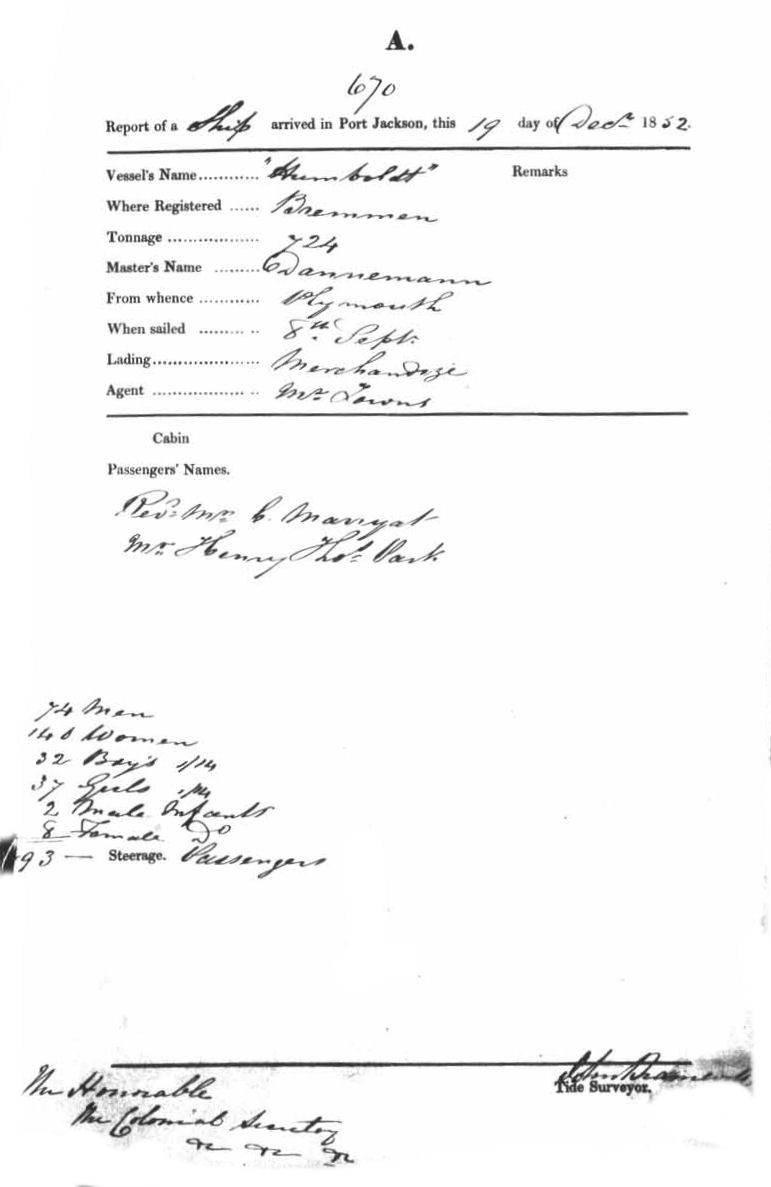 A.
670
Report of a Ship arrived in Port Jackson, this 19 day of Decr. 1852.
Vessel's Name............ "Humboldt" Remarks
Where Registered ...... Bremmen
Tonnage .................. 724
Master's Name ......... Dannemann
From whence ............ Plymouth
When sailed ......... .. 8th Sept.
Lading..................... Merchandize
Agent .................. .. Mr. Towns
Cabin
Passengers' Names.
Revd. Mr. C. Marryat
Mr. Henry Thos. Park
74 Men
140 Women
32 Boys 1/14
37 Girls 1/14
2 Male Infants
8 Female Do
93 — Steerage. Passengers
John
Tide Surveyor.
The Honorable
The Colonial Secretary
&c &c &c